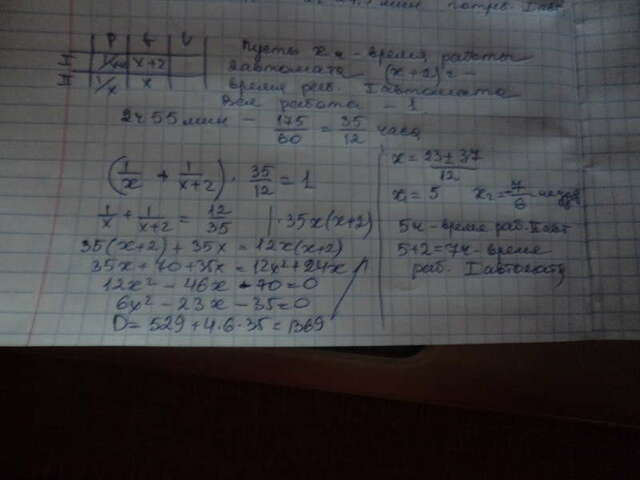 мин потреб. I авт
P t V
I 1/x+2 x+2
II 1/x x
Пусть x ч - время работы
II автомата (x+2) ч -
время раб. I автомата
Вся работа - 1.
2ч 55 мин - 175/60 = 35/12 часа
(1/x + 1/x+2) · 35/12 = 1
1/x + 1/x+2 = 12/35 | · 35x(x+2)
35(x+2) + 35x = 12x(x+2)
35x + 70 + 35x = 12x² + 24x
12x² - 46x - 70 = 0
6x² - 23x - 35 = 0
D = 529 + 4·6·35 = 1369
x = 23 ± 37/12
x₁ = 5 x₂ = -7/6
5ч - время раб. II авт
5+2=7ч - время
раб. I автомату